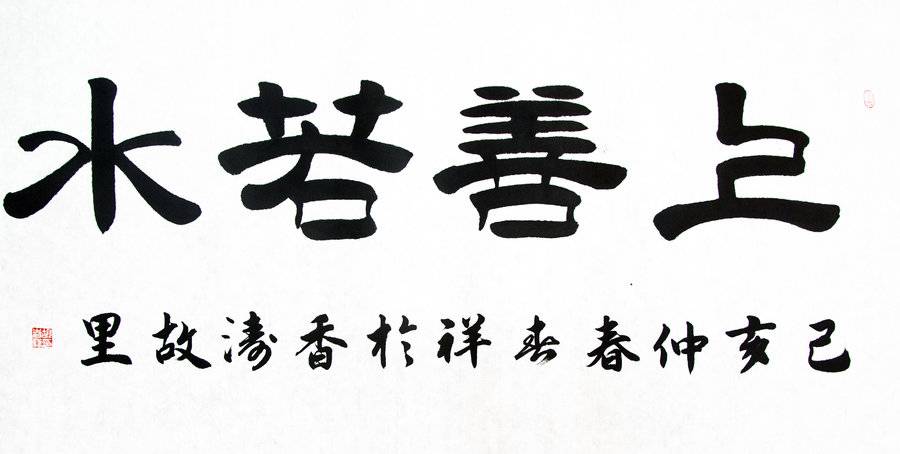 上善若水
己亥仲春春祥於香濤故里